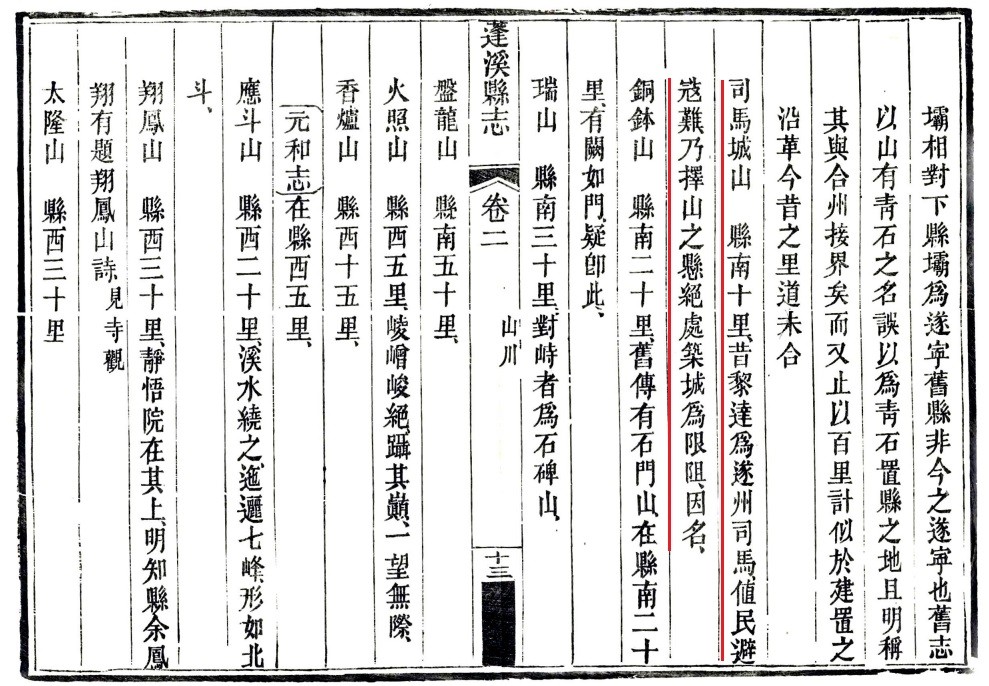 壩相對下縣壩爲遂寧舊縣非今之遂寧也舊志
以山有靑石之名誤以爲靑石置縣之地且明稱
其與合州接界矣而又止以百里計似於建置之
沿革今昔之里道未合
司馬城山 縣南十里、昔黎達爲遂州司馬、値民避
寇難乃擇山之懸絕處築城爲限阻、因名、
銅鉢山 縣南二十里、舊傳有石門山、在縣南二十
里、有闕如門、疑卽此、
瑞山 縣南三十里、對峙者爲石碑山、
蓬溪縣志 卷二 山川 十三
盤龍山 縣南五十里、
火照山 縣西五里、崚嶒峻絕、躡其巔、一望無際、
香爐山 縣西十五里、
元和志在縣西五里、
應斗山 縣西二十里、溪水繞之、迤邐七峰、形如北
斗、
翔鳳山 縣西三十里、靜悟院在其上、明知縣余鳳
翔有題翔鳳山詩見寺觀
太隆山 縣西三十里